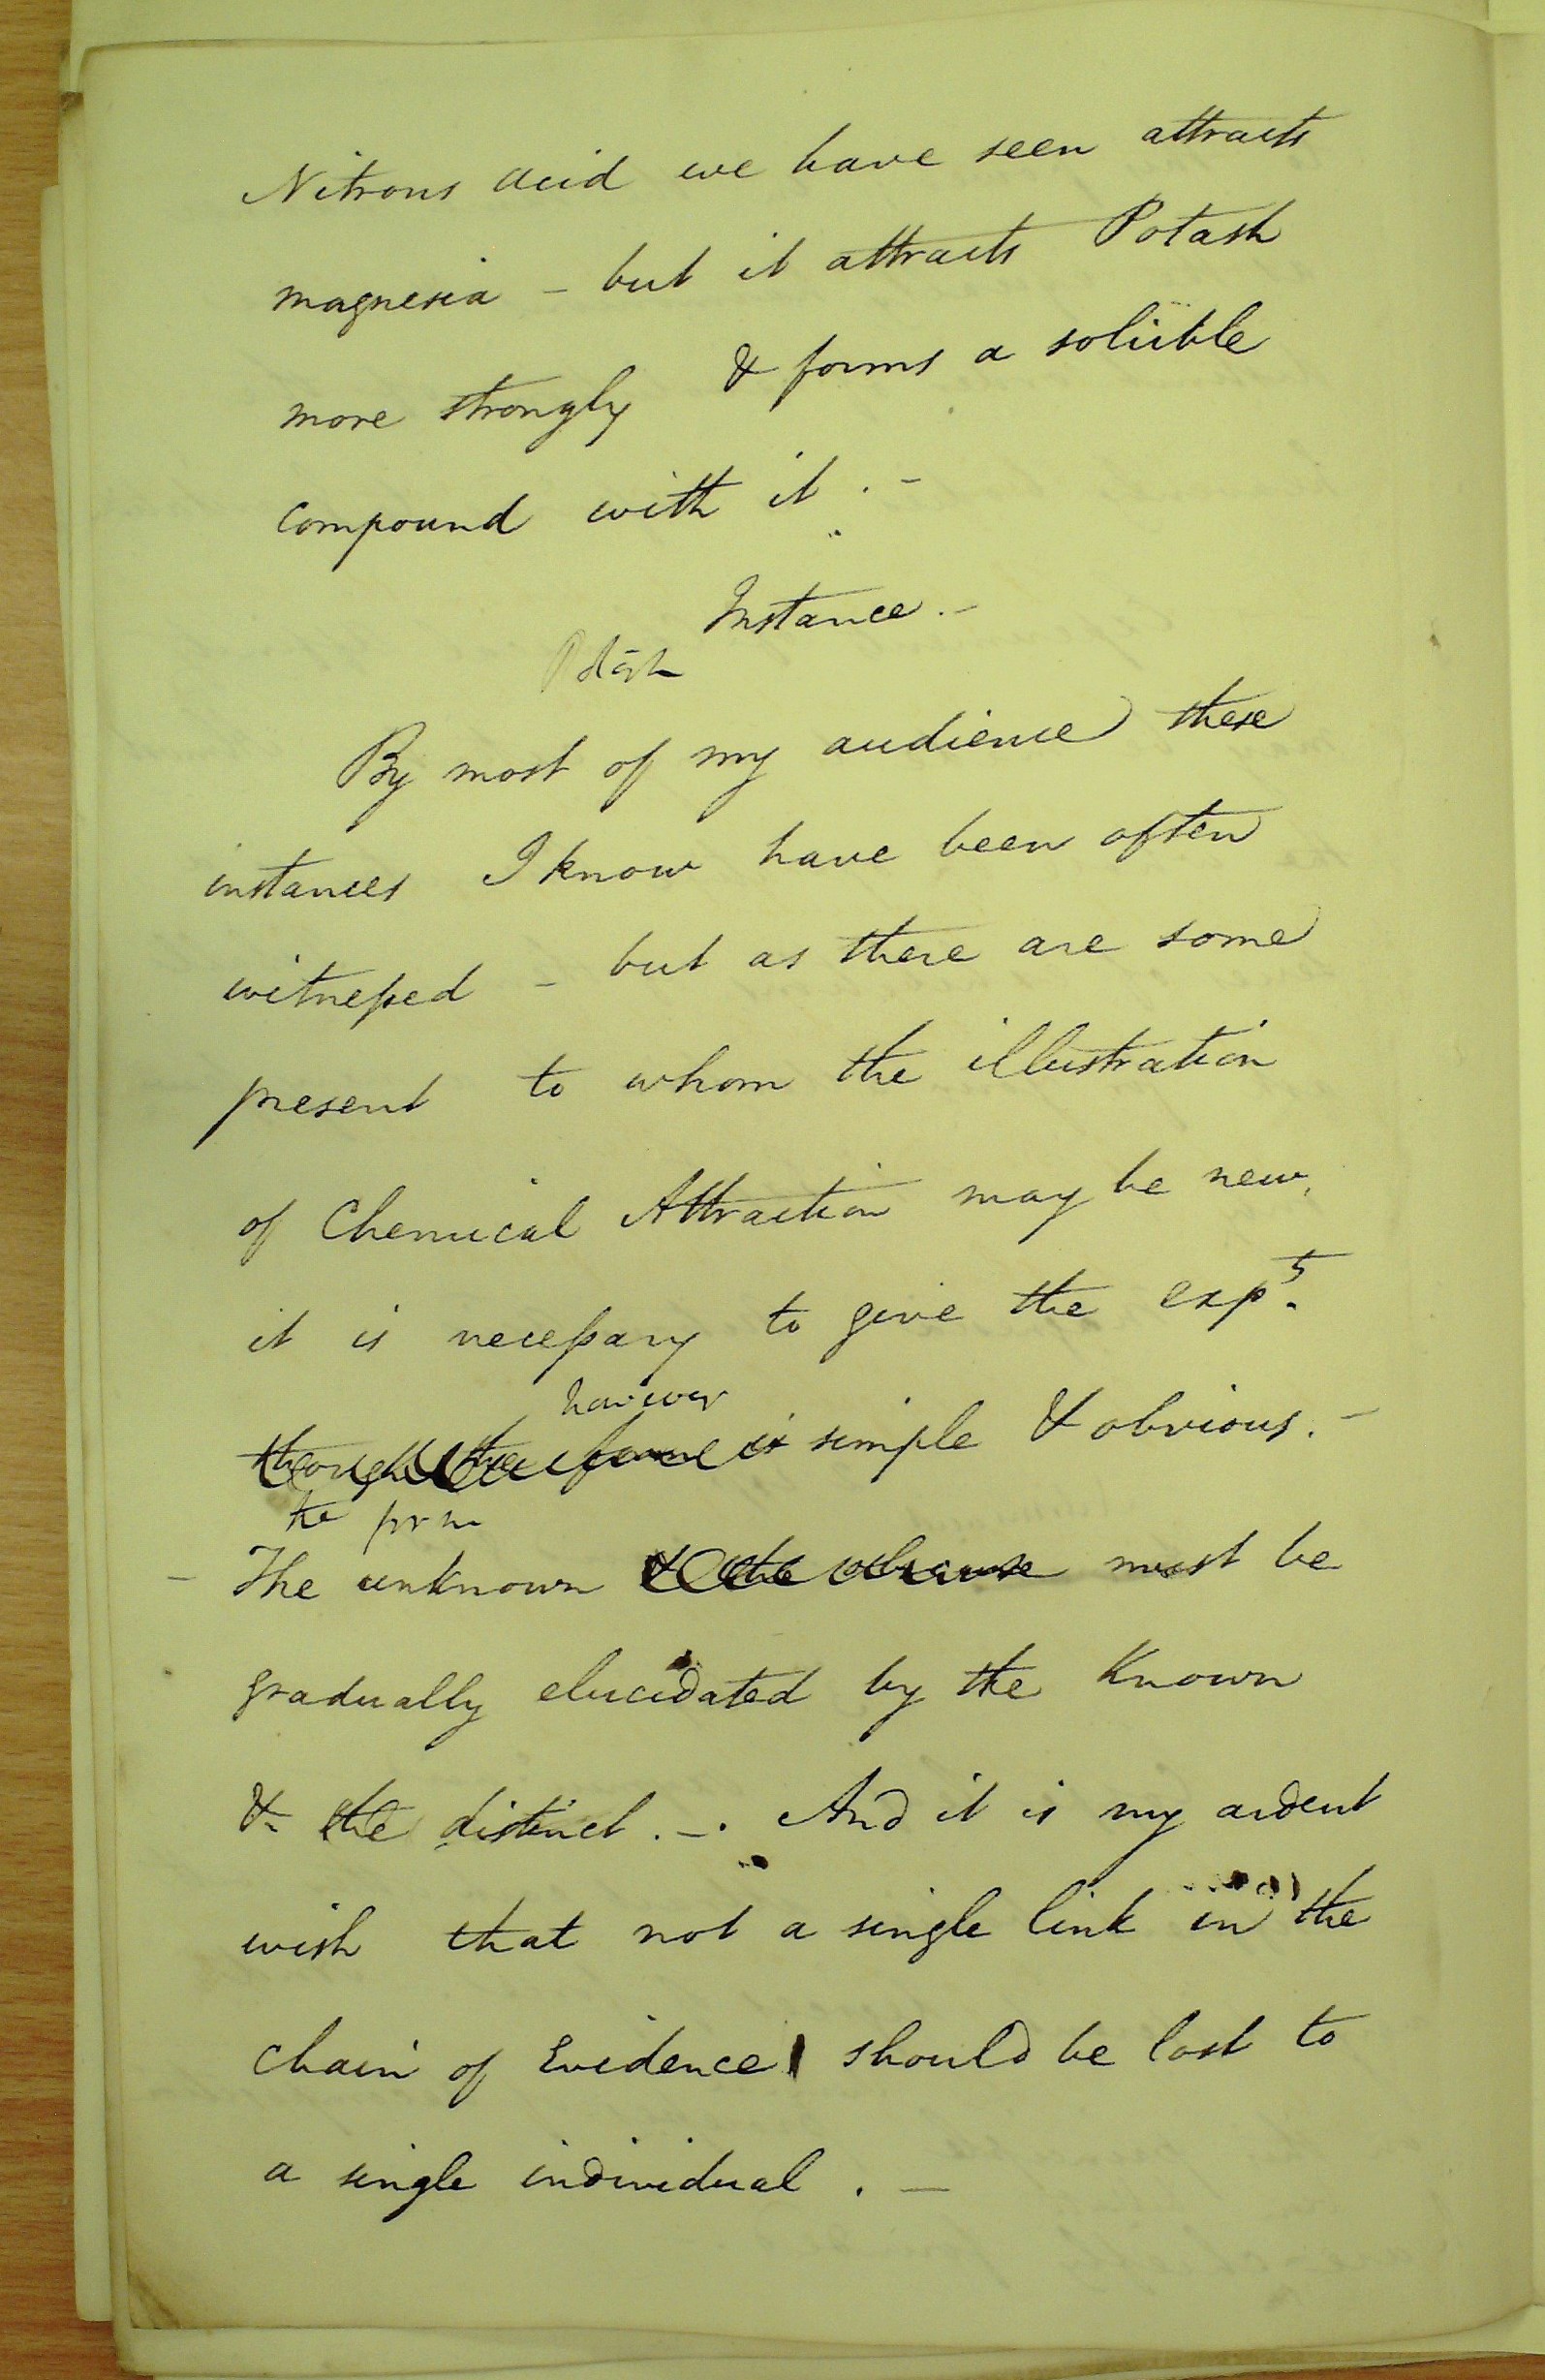 Nitrous acid we have seen attracts
magnesia - but it attracts Potash
more strongly & forms a soluble
compound with it . -
Instance . -
Potash
By most of my audience these
instances I know have been often
witneſsed - but as there are some
present to whom the illustration
of Chemical Attraction may be new,
it is neceſsary to give the expt.
however
though the form is simple & obvious. -
the form
- The unknown & the obscure must be
gradually elucidated by the Known
& the distinct . - . And it is my ardent
wish that not a single link in the
chain of Evidence should be lost to
a single individual . -